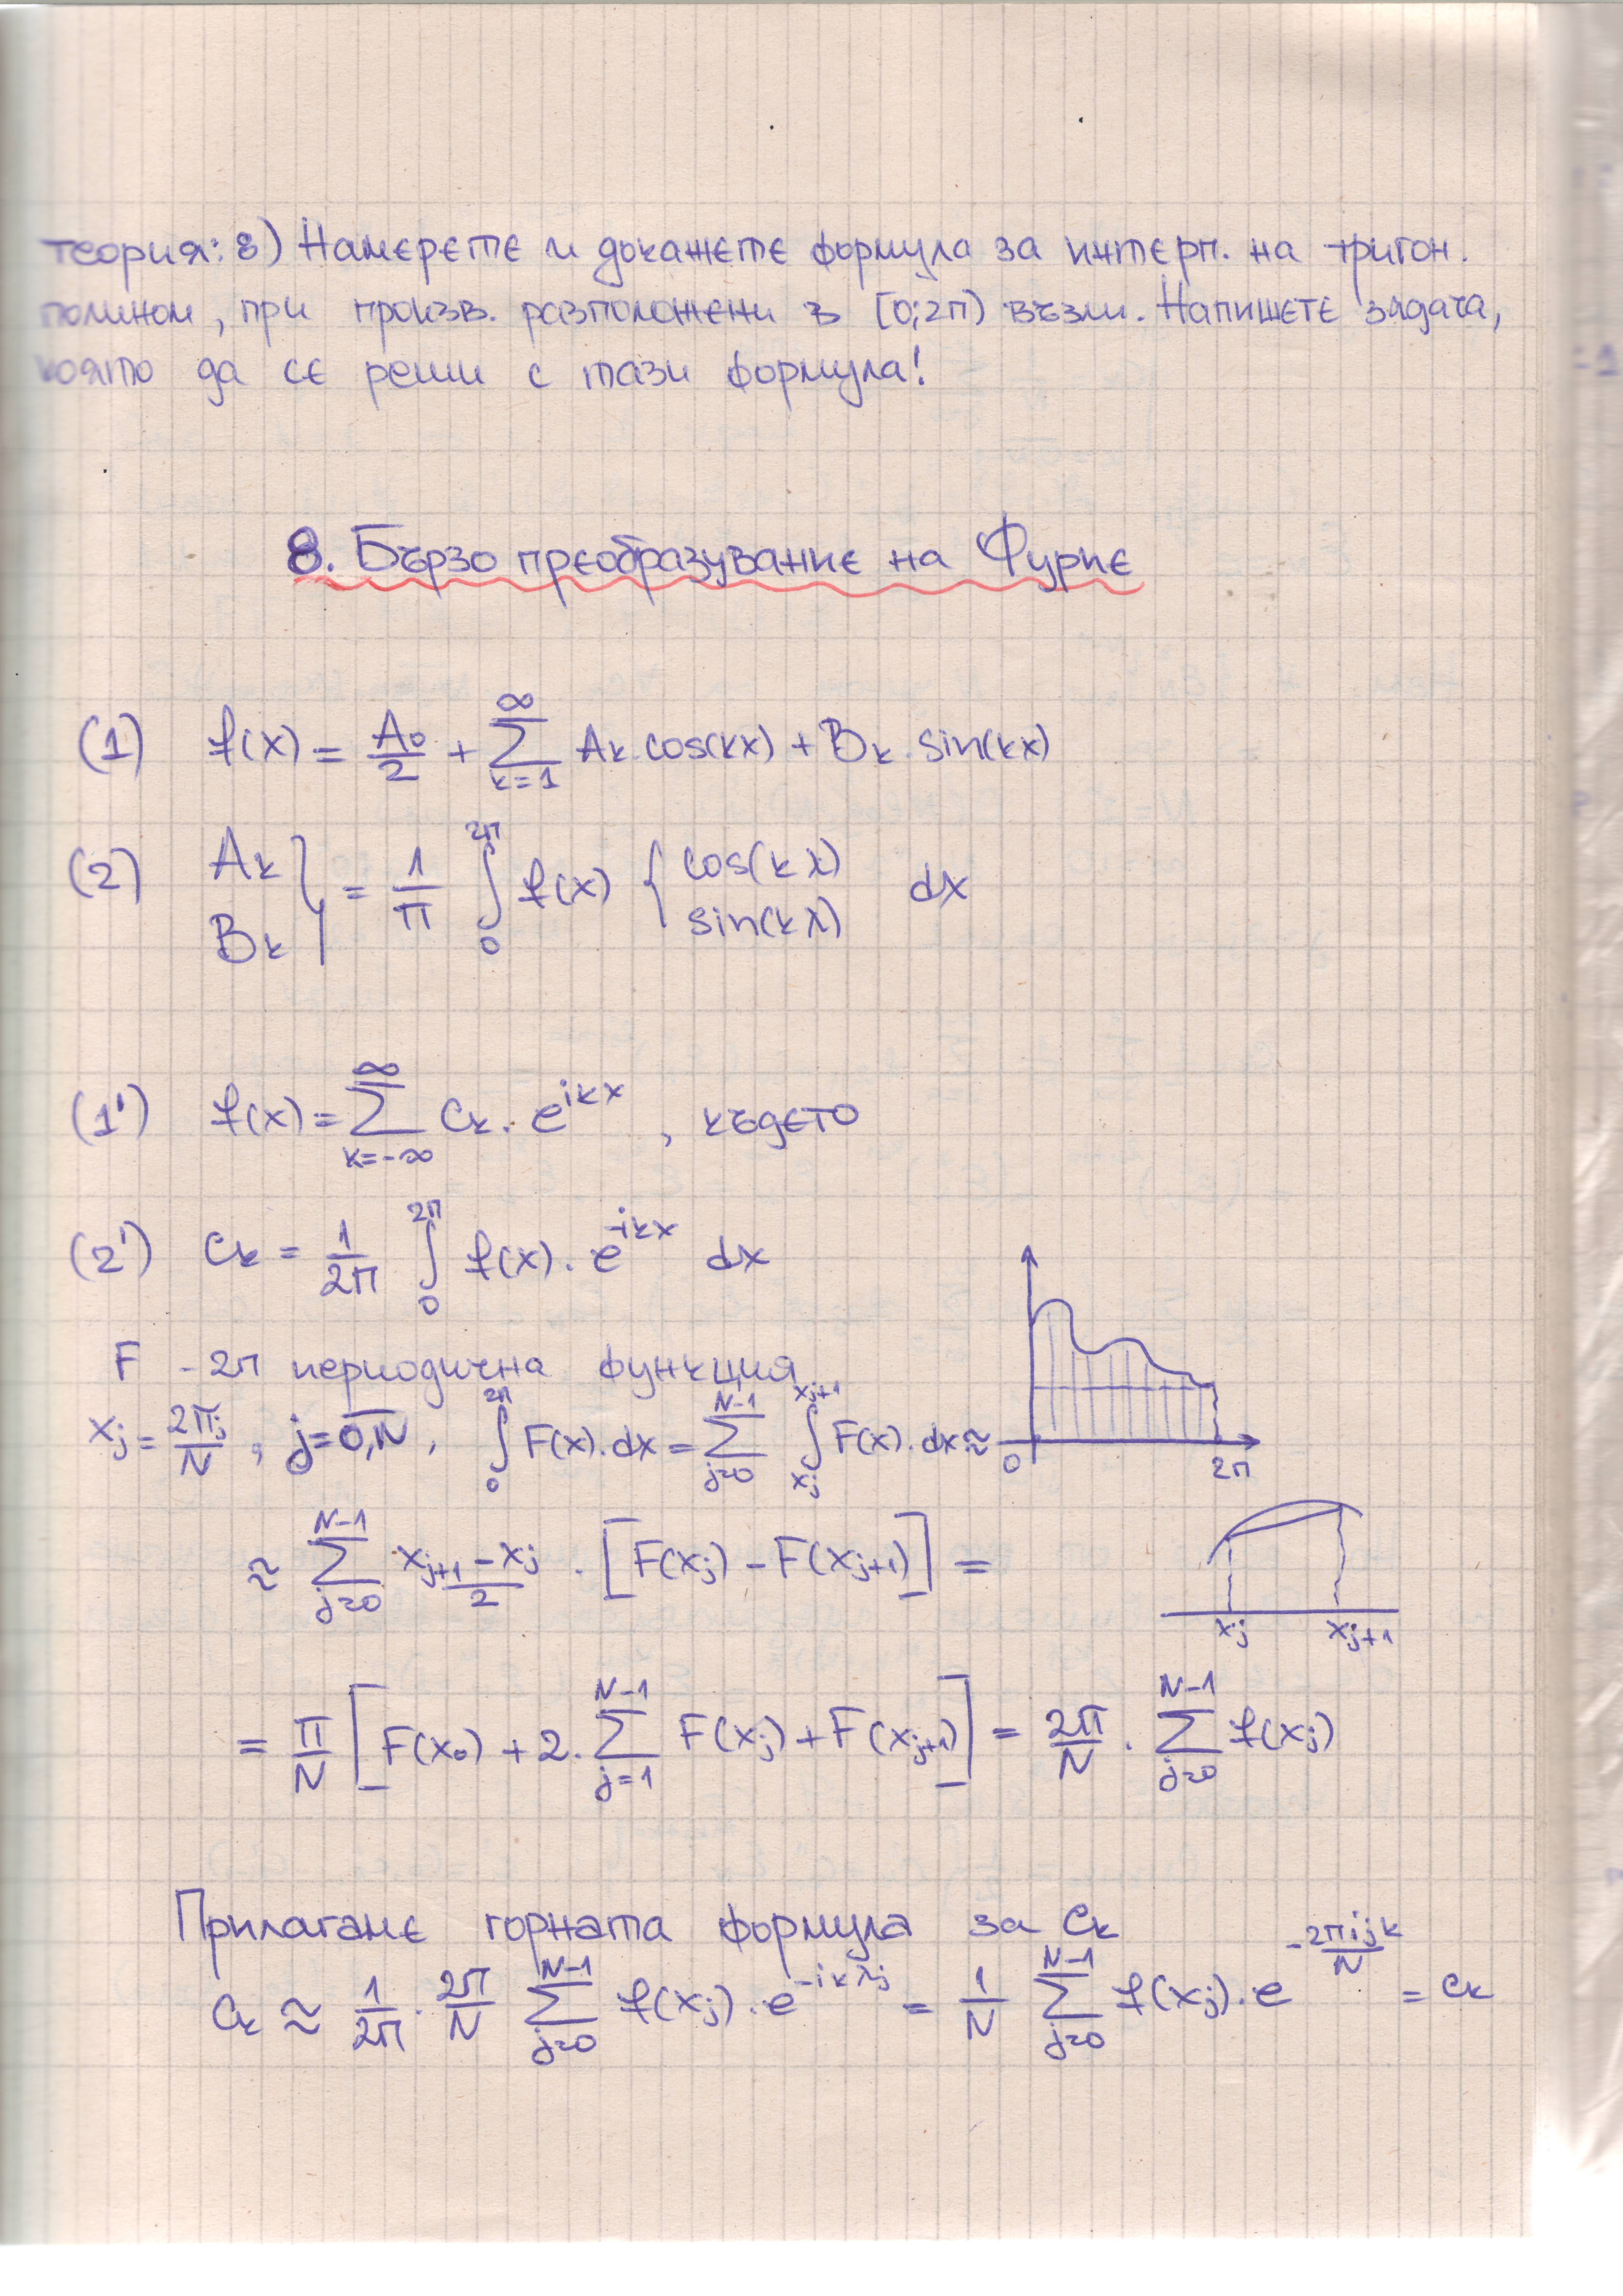 теория: 8) Намерете и докажете формула за интерп. на тригон.
полином, при произв. разположени в [0;2π) възли. Напишете задача,
която да се реши с тази формула!
8. Бързо преобразувание на Фурие
(1) f(x) = A₀/2 + ∑_{k=1}^{∞} Aₖ.cos(kx) + Bₖ.sin(kx)
(2) Aₖ Bₖ } = 1/π ∫_0^{2π} f(x) { cos(kx) sin(kx) dx
(1') f(x) = ∑_{k=-∞}^{∞} Cₖ. e^{ikx} , където
(2') Cₖ = 1/2π ∫_0^{2π} f(x). e^{-ikx} dx
F - 2π периодична функция
x_j = 2πj/N , j=0,N , ∫_0^{2π} F(x).dx = ∑_{j=0}^{N-1} ∫_{x_j}^{x_{j+1}} F(x).dx ≈
0 2π
≈ ∑_{j=0}^{N-1} x_{j+1} - x_j / 2 . [F(x_j) - F(x_{j+1})] =
x_j x_{j+1}
= π/N [F(x₀) + 2. ∑_{j=1}^{N-1} F(x_j) + F(x_{j+1})] = 2π/N . ∑_{j=0}^{N-1} f(x_j)
Прилагаме горната формула за Cₖ
Cₖ ≈ 1/2π . 2π/N ∑_{j=0}^{N-1} f(x_j).e^{-ikx_j} = 1/N ∑_{j=0}^{N-1} f(x_j).e^{-2πijk/N} = cₖ